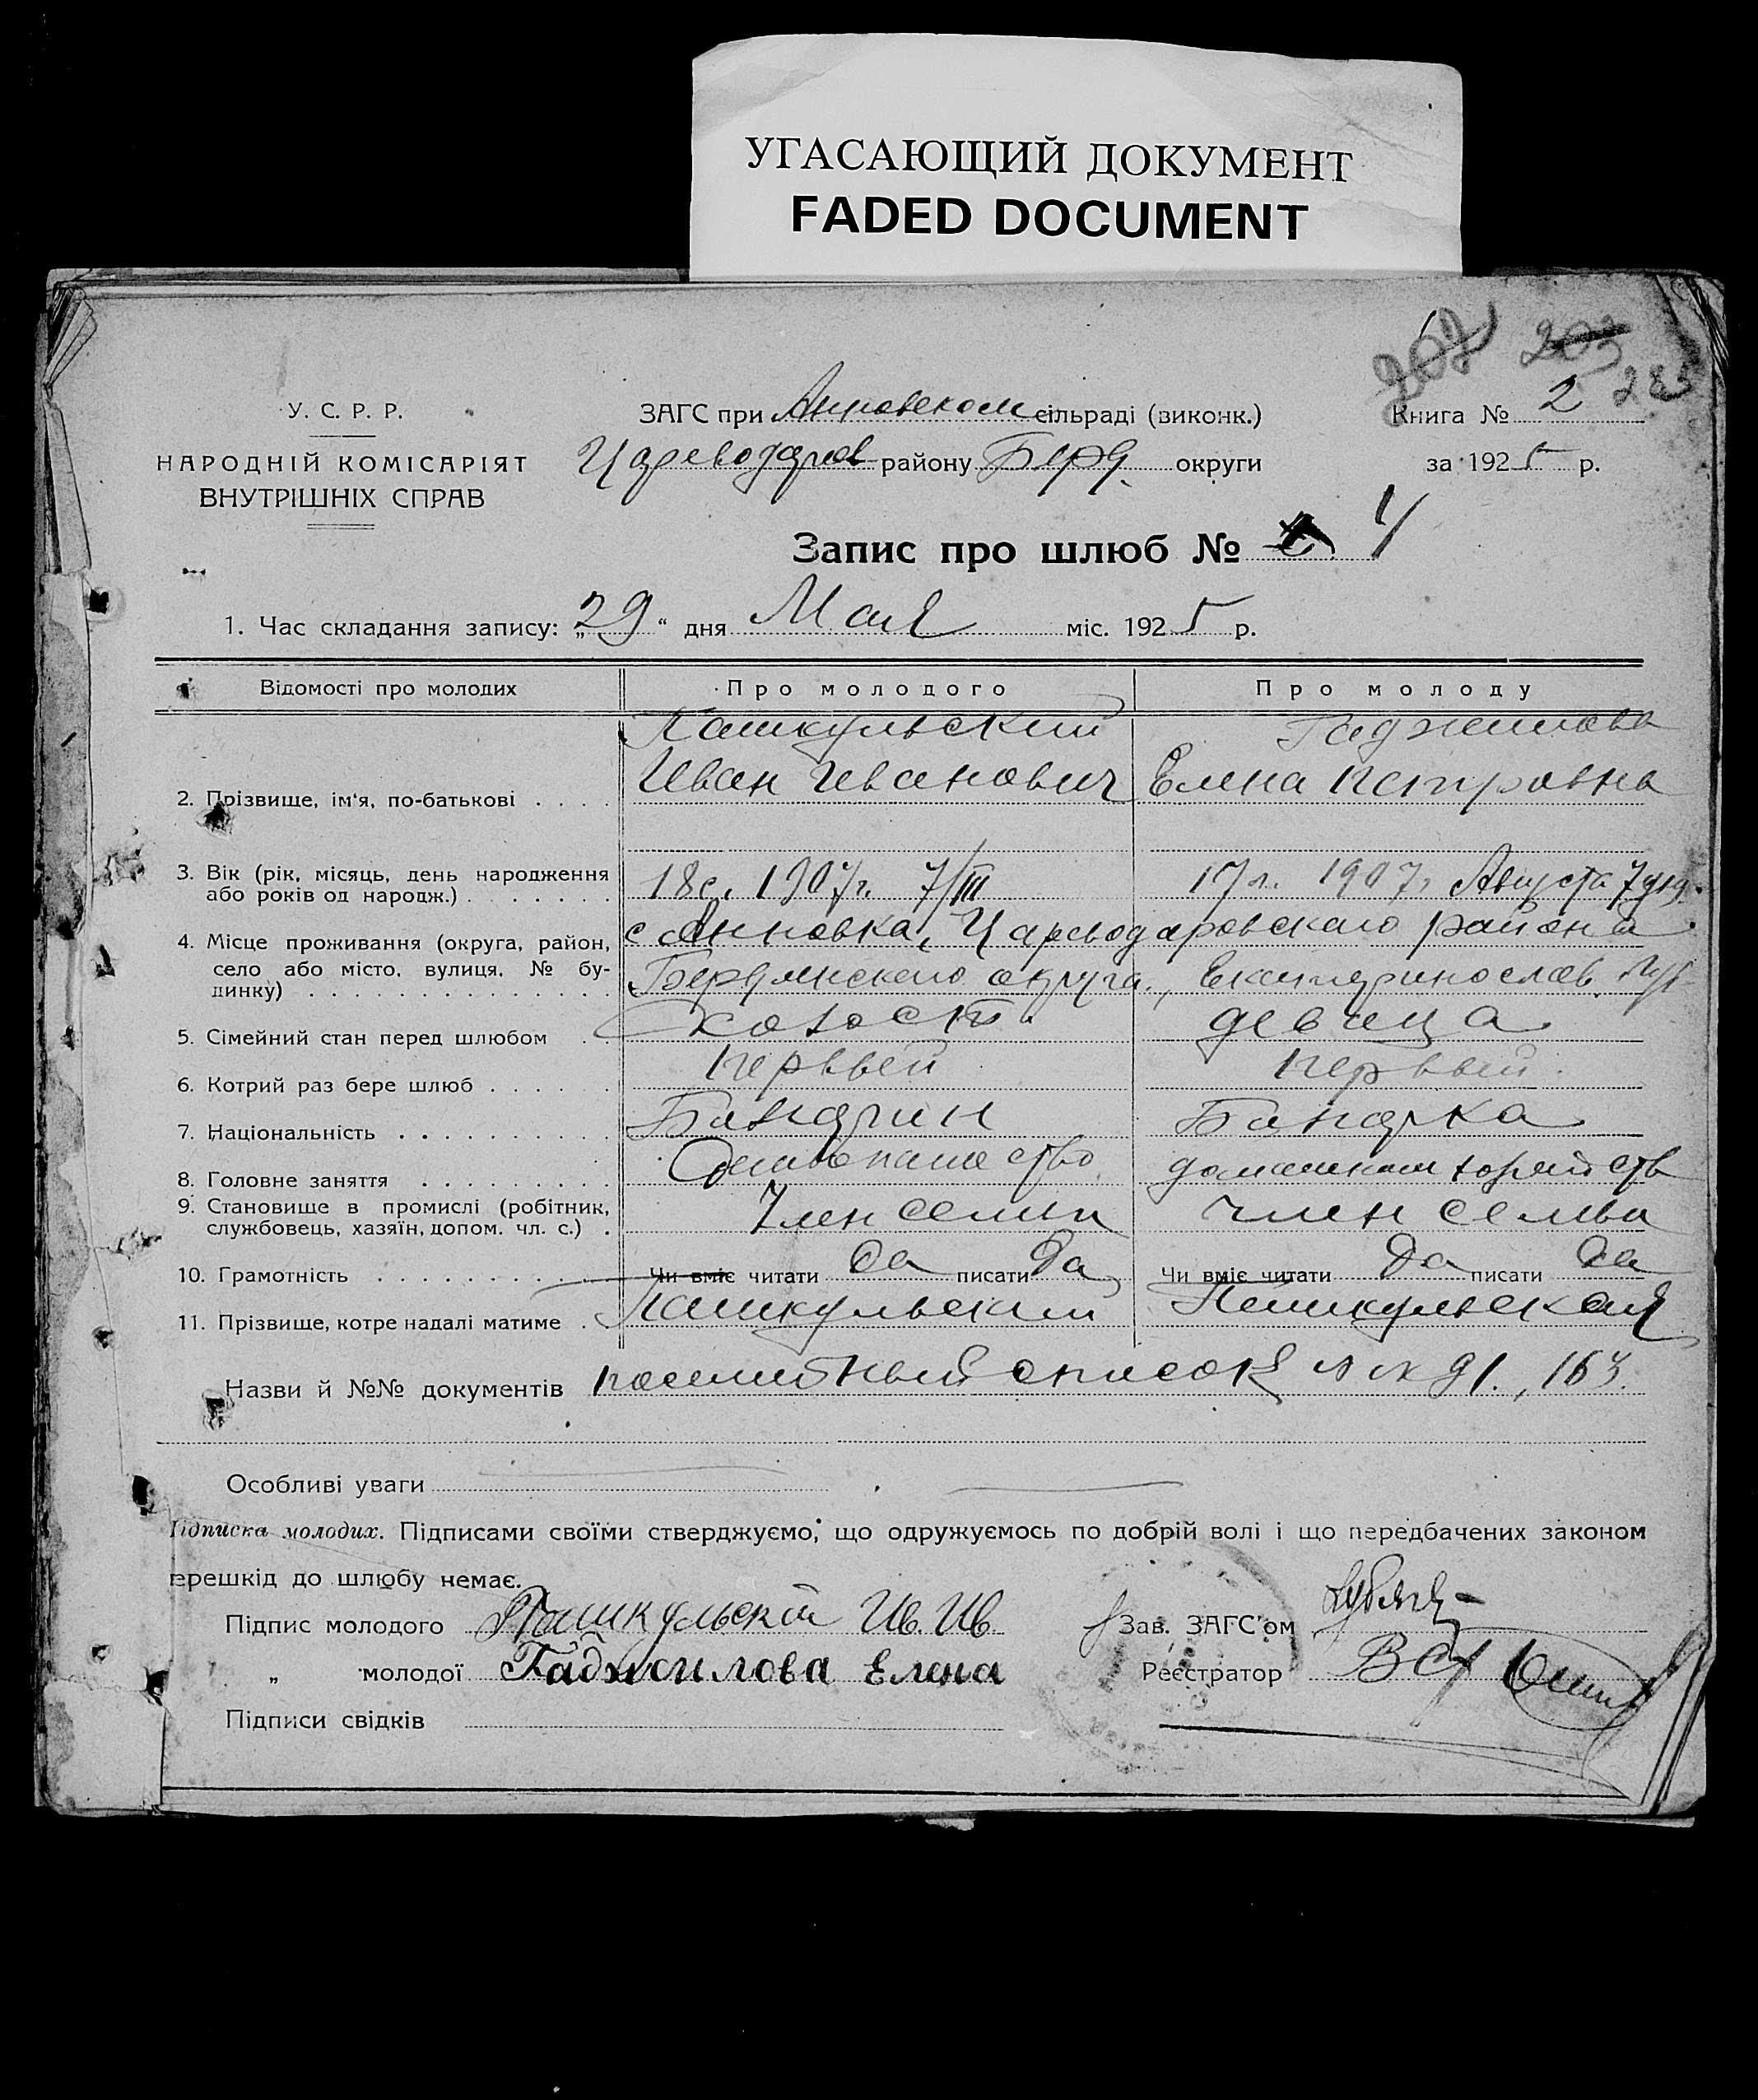 УГАСАЮЩИЙ ДОКУМЕНТ
FADED DOCUMENT
207 203
285
У. С. Р. Р.
НАРОДНІЙ КОМІСАРІЯТ
ВНУТРІШНІХ СПРАВ
ЗАГС при Анновском сільраді (виконк.)
Цареводаров району Берд. округи
Книга № 2
за 1925 р.
Запис про шлюб № 4
1. Час складання запису: „29“ дня Мая міс. 1925 р.
Відомості про молодих Про молодого Про молоду
Пашкульский Гаджилова
2. Прізвище, ім'я, по-батькові . . . . Иван Иванович Елена Петровна
3. Вік (рік, місяць, день народження
або років од народж.) . . . . . . . 18л. 1907г. 7/III 17л. 1907г. Августа 7 дня.
4. Місце проживання (округа, район,
село або місто, вулиця, № бу-
динку) . . . . . . . . . . . . . .
с Анновка, Цареводаровского района
Бердянского округа, Екатеринослав. Губ
5. Сімейний стан перед шлюбом . . холост. девица
6. Котрий раз бере шлюб . . . . . первый первый.
7. Національність . . . . . . . . . Болгарин Болгарка
8. Головне заняття . . . . . . . . . хлебопашество домашнем хозяйств
9. Становище в промислі (робітник,
службовець, хазяїн, допом. чл. с.) . Член семьи член семьи
10. Грамотність . . . . . . . . . . Чи вміє читати Да писати Да Чи вміє читати Да писати Да
11. Прізвище, котре надалі матиме . . Пашкульский Пашкульская
Назви й №№ документів посемейный список № 91., 163.
Особливі уваги
Підписка молодих. Підписами своїми стверджуємо, що одружуємось по добрій волі і що передбачених законом
перешкід до шлюбу немає.
Підпис молодого Пашкульскій Ив. Ив. Зав. ЗАГС'ом
„ молодої Гаджилова Елена Реєстратор
Підписи свідків